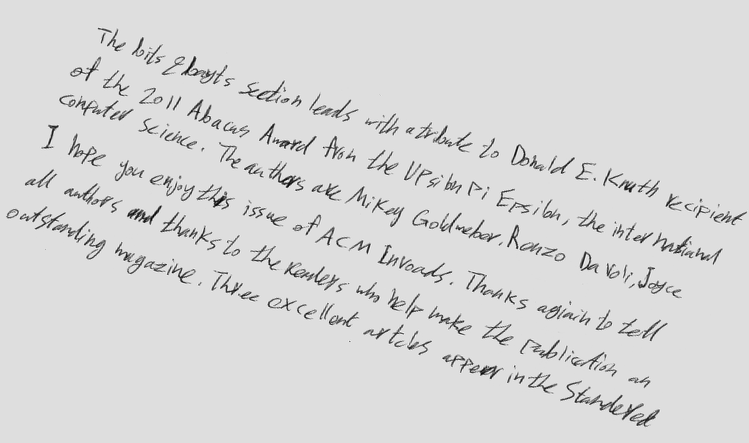 The bits & bayts section leads with a tribute to Donald E. Knuth recipient
of the 2011 Abacus Award from the Upsilon Pi Epsilon, the international
computer Science. The authors are Mikey Goldweber, Renzo Davoli, Joyce
I hope you enjoy this issue of ACM Inroads. Thanks agiain to tell
all authors and thanks to the readers who help make the publication an
outstanding magazine. Three excellent articles appear in the Standered